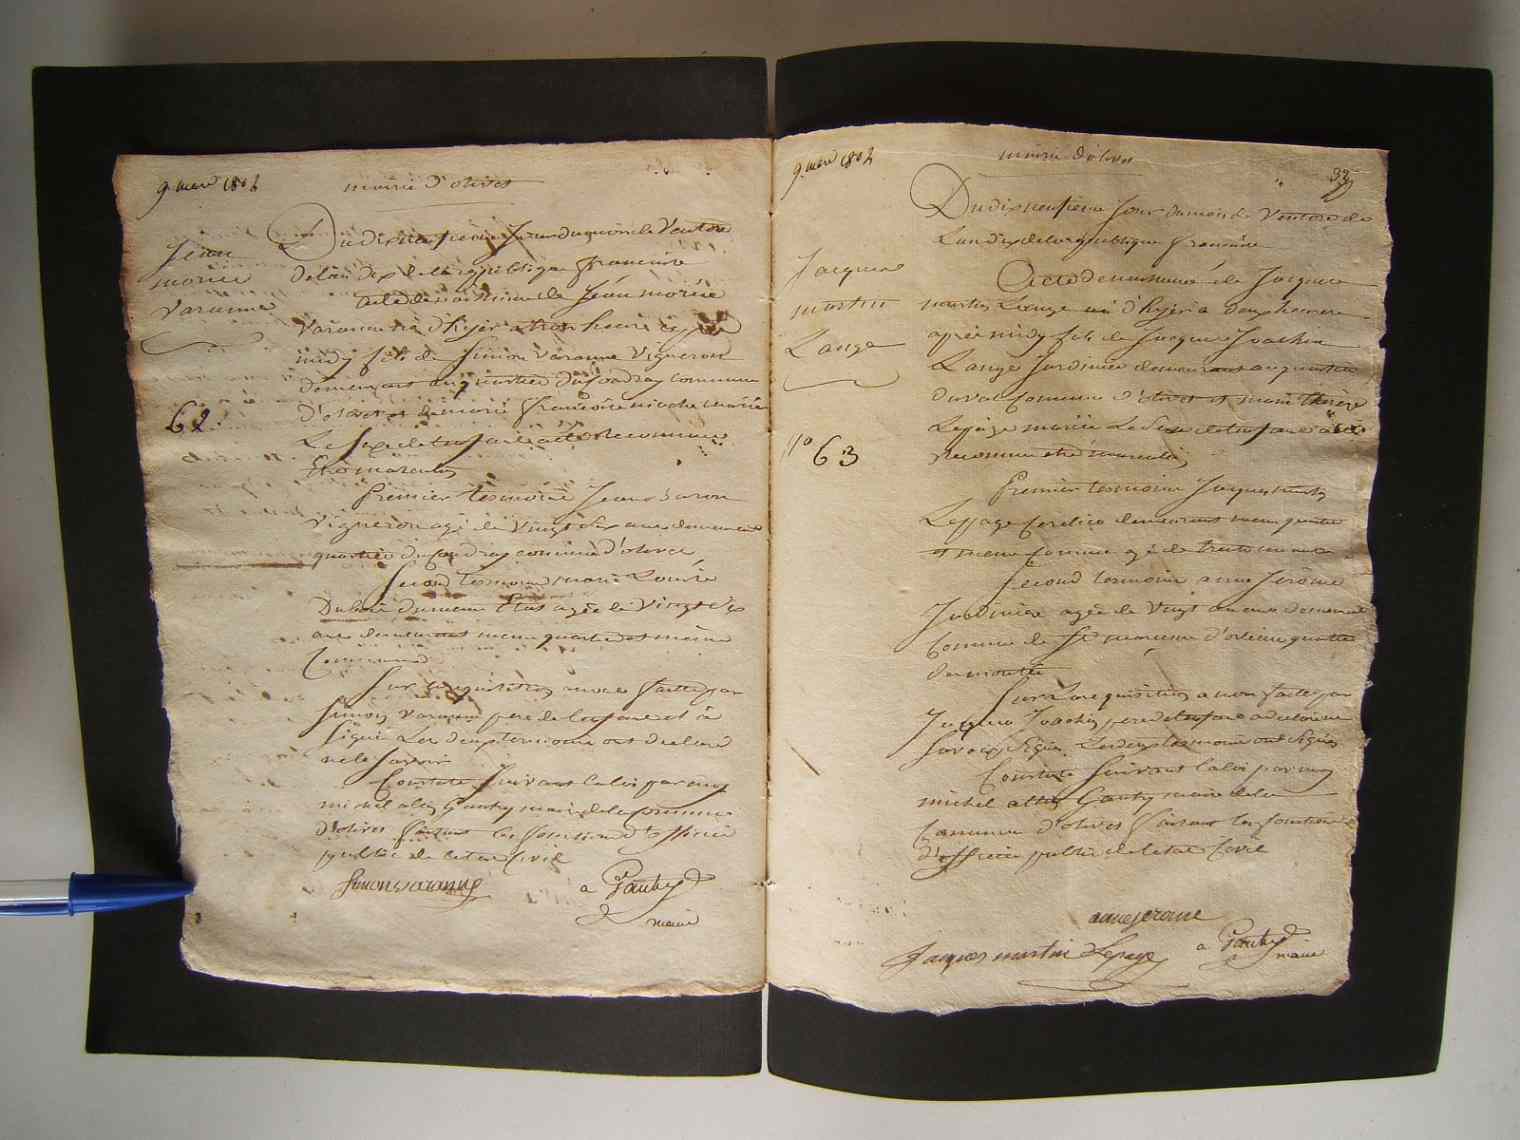 9 mars 1802
mairie d'olivet
Jean
morice
Varanne
62.
Du dixneufieme Jour du mois de Ventose
de lan dix de la republique francaise
acte de naissance de Jean morice
Varanne né d'hyer a trois heure après
midy fils de Simon Varanne Vigneron
demeurant au quartier du Coudray commune
d'olivet et de marie françoise
Le Sexe de lenfant a été Reconnue
Etre masculin
premier temoin Jean baron
Vigneron agé de Vingt six ans demeurant
quartier du Coudray commune d'olivet
Second temoin marie Louise
Dubois du meme Etat agée de Vingt six
ans demeurant meme quartier et meme
Commune
Sur la requisition a nous faitte par
Simon Varanne pere de lenfant et a
Signé Les deux temoins ont declaré
ne le Savoir
Constaté Suivant la loi par moy
michel alexis Gauty maire de la Commune
d'olivet faisant les fonctions d'officier
public de l'etat Civil
Simon Varanne
a Gauty
maire
9 mars 1802
mairie d'olivet
32
Jacques
martin
Lange
n° 63
Du dixneufieme Jour du mois de Ventose de
Lan dix de la republique francaise
Acte de naissance de Jacques
martin Lange né d'hyer a deux heures
après midy fils de Jacques Joachim
Lange Jardinier demeurant au quartier
du val Commune d'olivet et marie therese
Lepage mariée Le Sexe de lenfant a été
Reconnu etre masculin
Premier temoin Jacques martin
Lepage demeurant meme quartier
et meme Commune agé de trente
Second temoin anne Jerôme
Jardiniere agée de Vingt ans demeurant
Commune de St marceau d'orleans quartier
Sur La requisition a nous faitte par
Jacques Joachim pere de lenfant a declaré ne
Savoir Signer Les deux temoins ont Signés
Constaté Suivant la loi par moy
michel alexis Gauty maire de la
Commune d'olivet faisant les fonctions
d'officier public de l'etat Civil
anne jerome
Jacques martin Lepage
a Gauty
maire